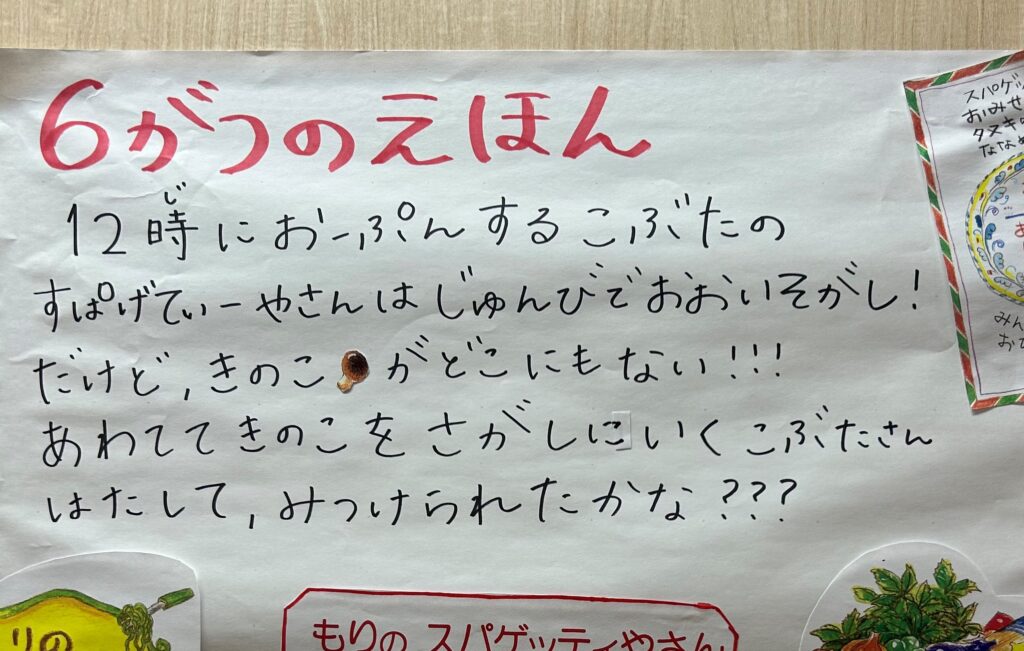 6がつのえほん
12時におーぷんするこぶたの
じ
すぱげてぃーやさんはじゅんびでおおいそがし!
だけど,きのこがどこにもない!!!
あわててきのこをさがしにいくこぶたさん
はたして,みつけられたかな???
スパゲッ
おみせ
タヌキの
ななめ
みん
おて
りの
もりの スパゲッティやさん